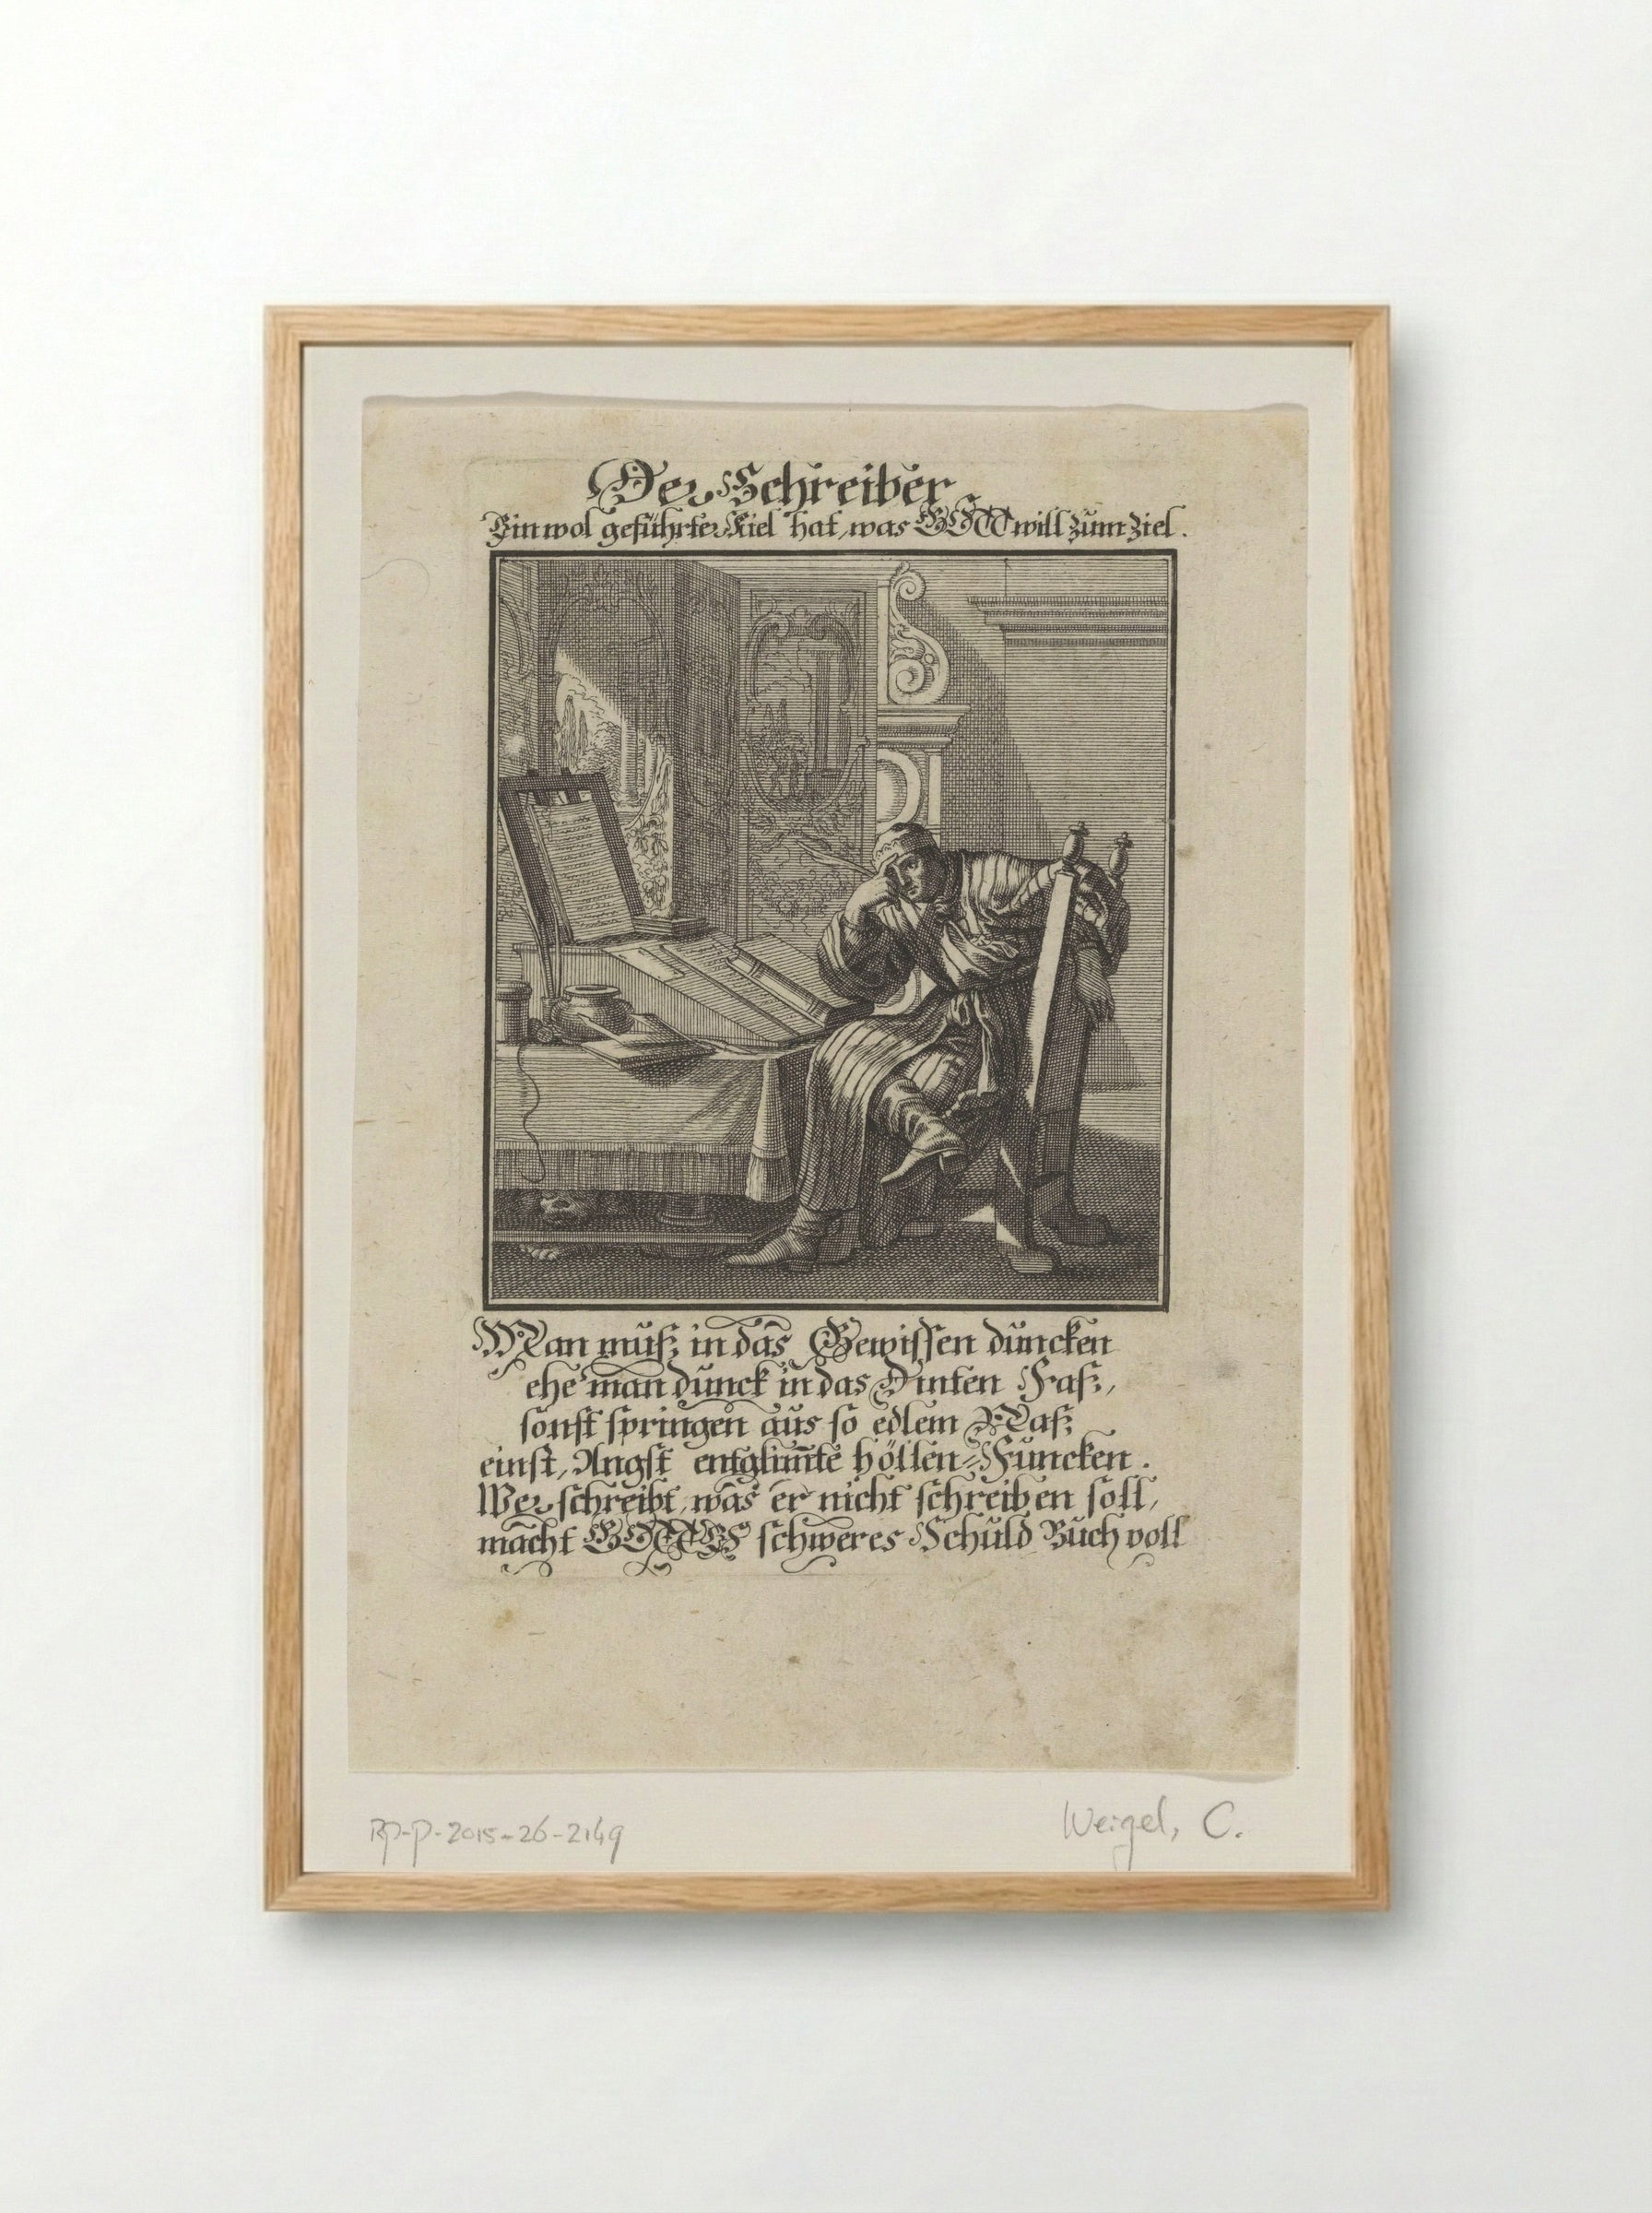 Der Schreiber
Ein wol geführter Kiel hat, was GOTT will zum Ziel.
Man muß in das Gewissen duncken
ehe man dunck in das Dinten Faß,
sonst springen aus so edlem Naß
einst, Angst entglim̄te höllen-Funcken.
Wer schreibt, was er nicht schreiben soll,
macht GOTTES schweres Schuld Buch voll
RP-P-2015-26-2149
Weigel, C.